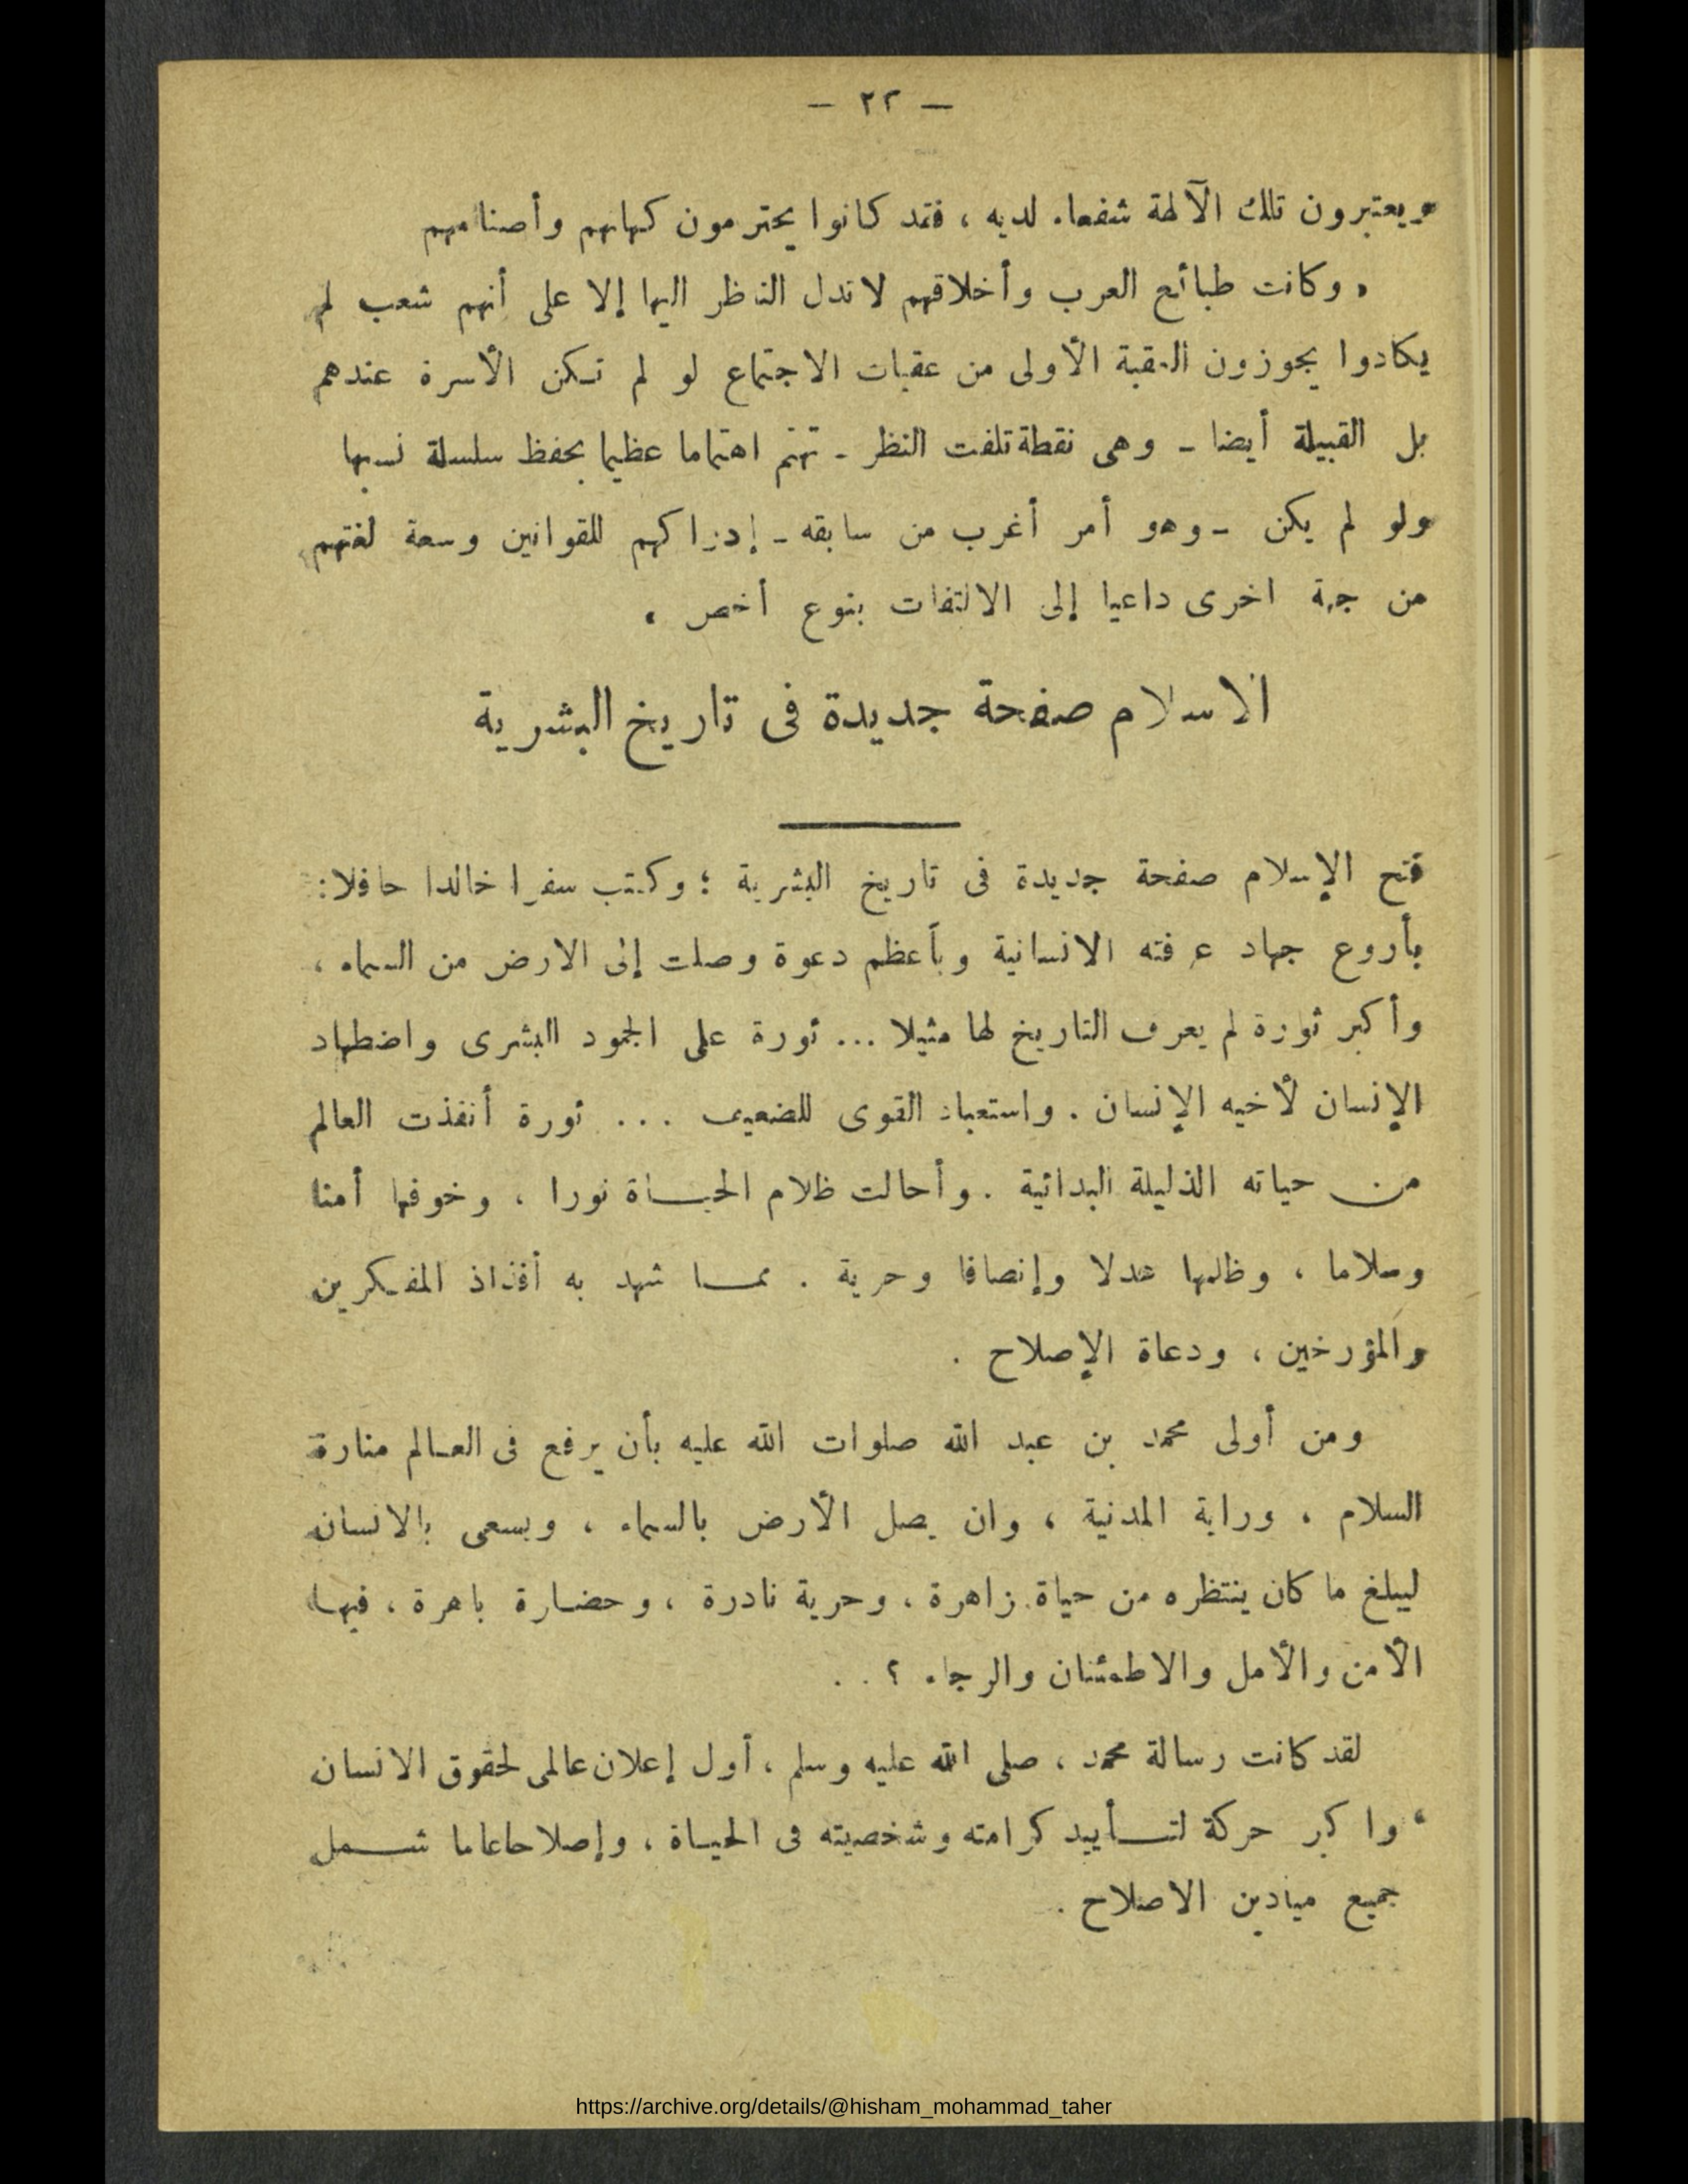 — ٢٢ —
ويعتبرون تلك الآلهة شفعاء لديه ، فقد كانوا يحترمون كهانهم وأصنامهم
، وكانت طبائع العرب وأخلاقهم لا تدل الناظر اليها إلا على أنهم شعب لم
يكادوا يجوزون العقبة الأولى من عقبات الاجتماع لو لم تكن الأسرة عندهم
بل القبيلة أيضا - وهى نقطة تلفت النظر - تهتم اهتماما عظيما بحفظ سلسلة نسبها
ولو لم يكن - وهو أمر أغرب من سابقه - إدراكهم للقوانين وسعة لغتهم
من جهة اخرى داعيا إلى الالتفات بنوع أخص .
الاسلام صفحة جديدة فى تاريخ البشرية
فتح الإسلام صفحة جديدة فى تاريخ البشرية ؛ وكتب سفرا خالدا حافلا :
بأروع جهاد عرفته الانسانية وبأعظم دعوة وصلت إلى الارض من السماء ،
وأكبر ثورة لم يعرف التاريخ لها مثيلا ... ثورة على الجمود البشرى واضطهاد
الإنسان لأخيه الإنسان . واستعباد القوى للضعيف ... ثورة أنقذت العالم
من حياته الذليلة البدائية . وأحالت ظلام الحياة نورا ، وخوفها أمنا
وسلاما ، وظلمها عدلا وإنصافا وحرية . مما شهد به أفذاذ المفكرين
والمؤرخين ، ودعاة الإصلاح .
ومن أولى محمد بن عبد الله صلوات الله عليه بأن يرفع فى العالم منارة
السلام ، وراية المدنية ، وان يصل الأرض بالسماء ، ويسعى بالانسان
ليبلغ ما كان ينتظره من حياة زاهرة ، وحرية نادرة ، وحضارة باهرة ، فيها
الأمن والأمل والاطمئنان والرجاء ؟ . .
لقد كانت رسالة محمد ، صلى الله عليه وسلم ، أول إعلان عالمى لحقوق الانسان
، واكبر حركة لتأييد كرامته وشخصيته فى الحياة ، وإصلاحا عاما شمل
جميع ميادين الاصلاح .
https://archive.org/details/@hisham_mohammad_taher